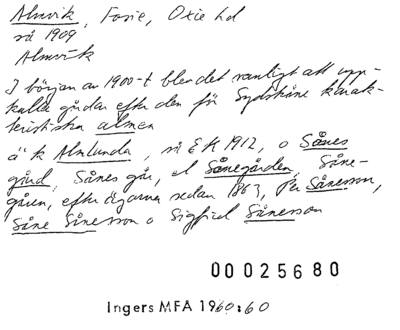 Almvik, Fosie, Oxie hd
så 1909
Almvik
I början av 1900-t blev det vanligt att upp-
kalla gårdar efter den för Sydskåne karak-
teristiska almen
ä k Almlunda, så EK 1912, o Sånes
gård, Sånes går, el Sånegården, Såne-
gåren, efter ägarna sedan 1863, Per Sånesson,
Såne Sånesson o Sigfrid Sånesson
00025680
Ingers MFA 1960:60